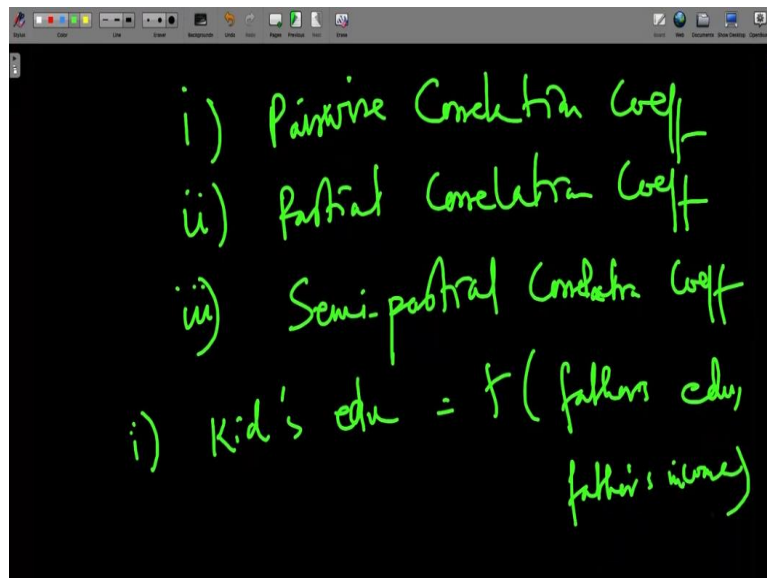 Stylus Color Line Eraser Backgrounds Undo Redo Pages Previous Next Erase Board Web Documents Show Desktop
i) Pairwise Correlation Coeff
ii) Partial Correlation Coeff
iii) Semi-partial Correlation Coeff
i) Kid's edu = f (father's edu,
father's income)